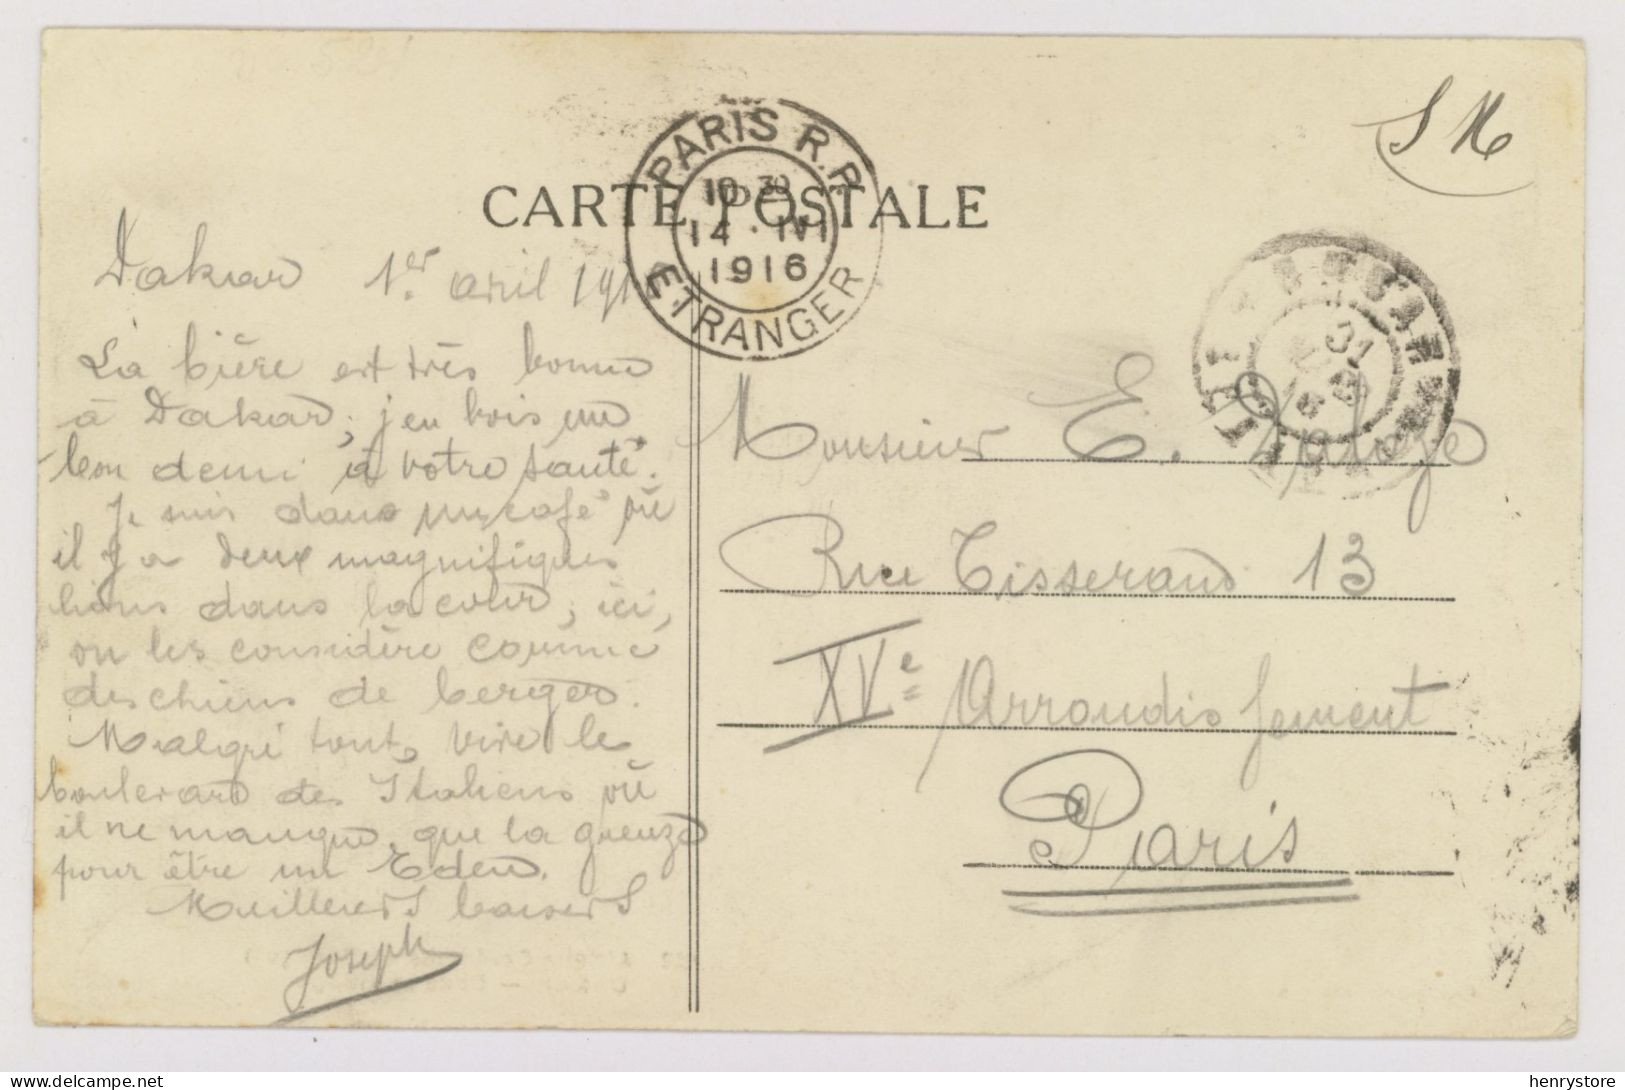 S M
CARTE POSTALE
PARIS R.P.
10 30
14 · IV
1916
ETRANGER
Dakar 1er. avril 191
La bière est très bonne
à Dakar, j'en bois un
bon demi à votre santé.
Je suis dans un café où
il y a deux magnifiques
lions dans la cour, ici,
on les considère comme
des chiens de berger.
Malgré tout, vive le
boulevard des Italiens où
il ne manque que la gueuze
pour être un Eden.
Meilleurs baisers
Joseph
31
Monsieur E.
Rue Tisserand 13
XVe Arrondissement
Paris
henrystore